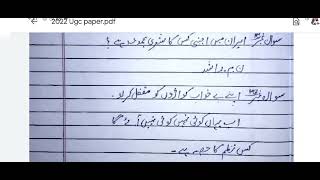 2022 Ugc paper.pdf
سوال نمبر ایران میں اجنبی کس کا شعری مجموعہ ہے؟
ن۔م۔راشد
سوال نمبر اپنے بے خواب کواڑوں کو مقفل کرلو۔
اب یہاں کوئی نہیں کوئی نہیں آئے گا
کس نظم کا حصہ ہے۔